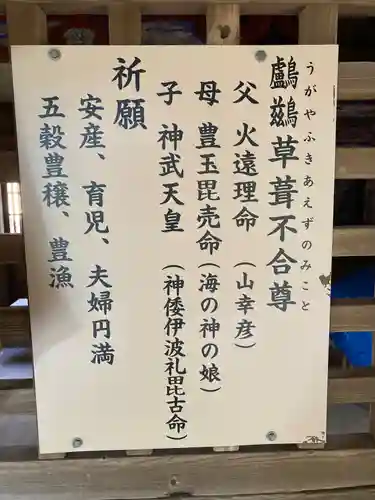 うがやふきあえずのみこと
鸕鷀草葺不合尊
父 火遠理命(山幸彦)
母 豊玉毘売命(海の神の娘)
子 神武天皇(神倭伊波礼毘古命)
祈願
安産、育児、夫婦円満
五穀豊穣、豊漁